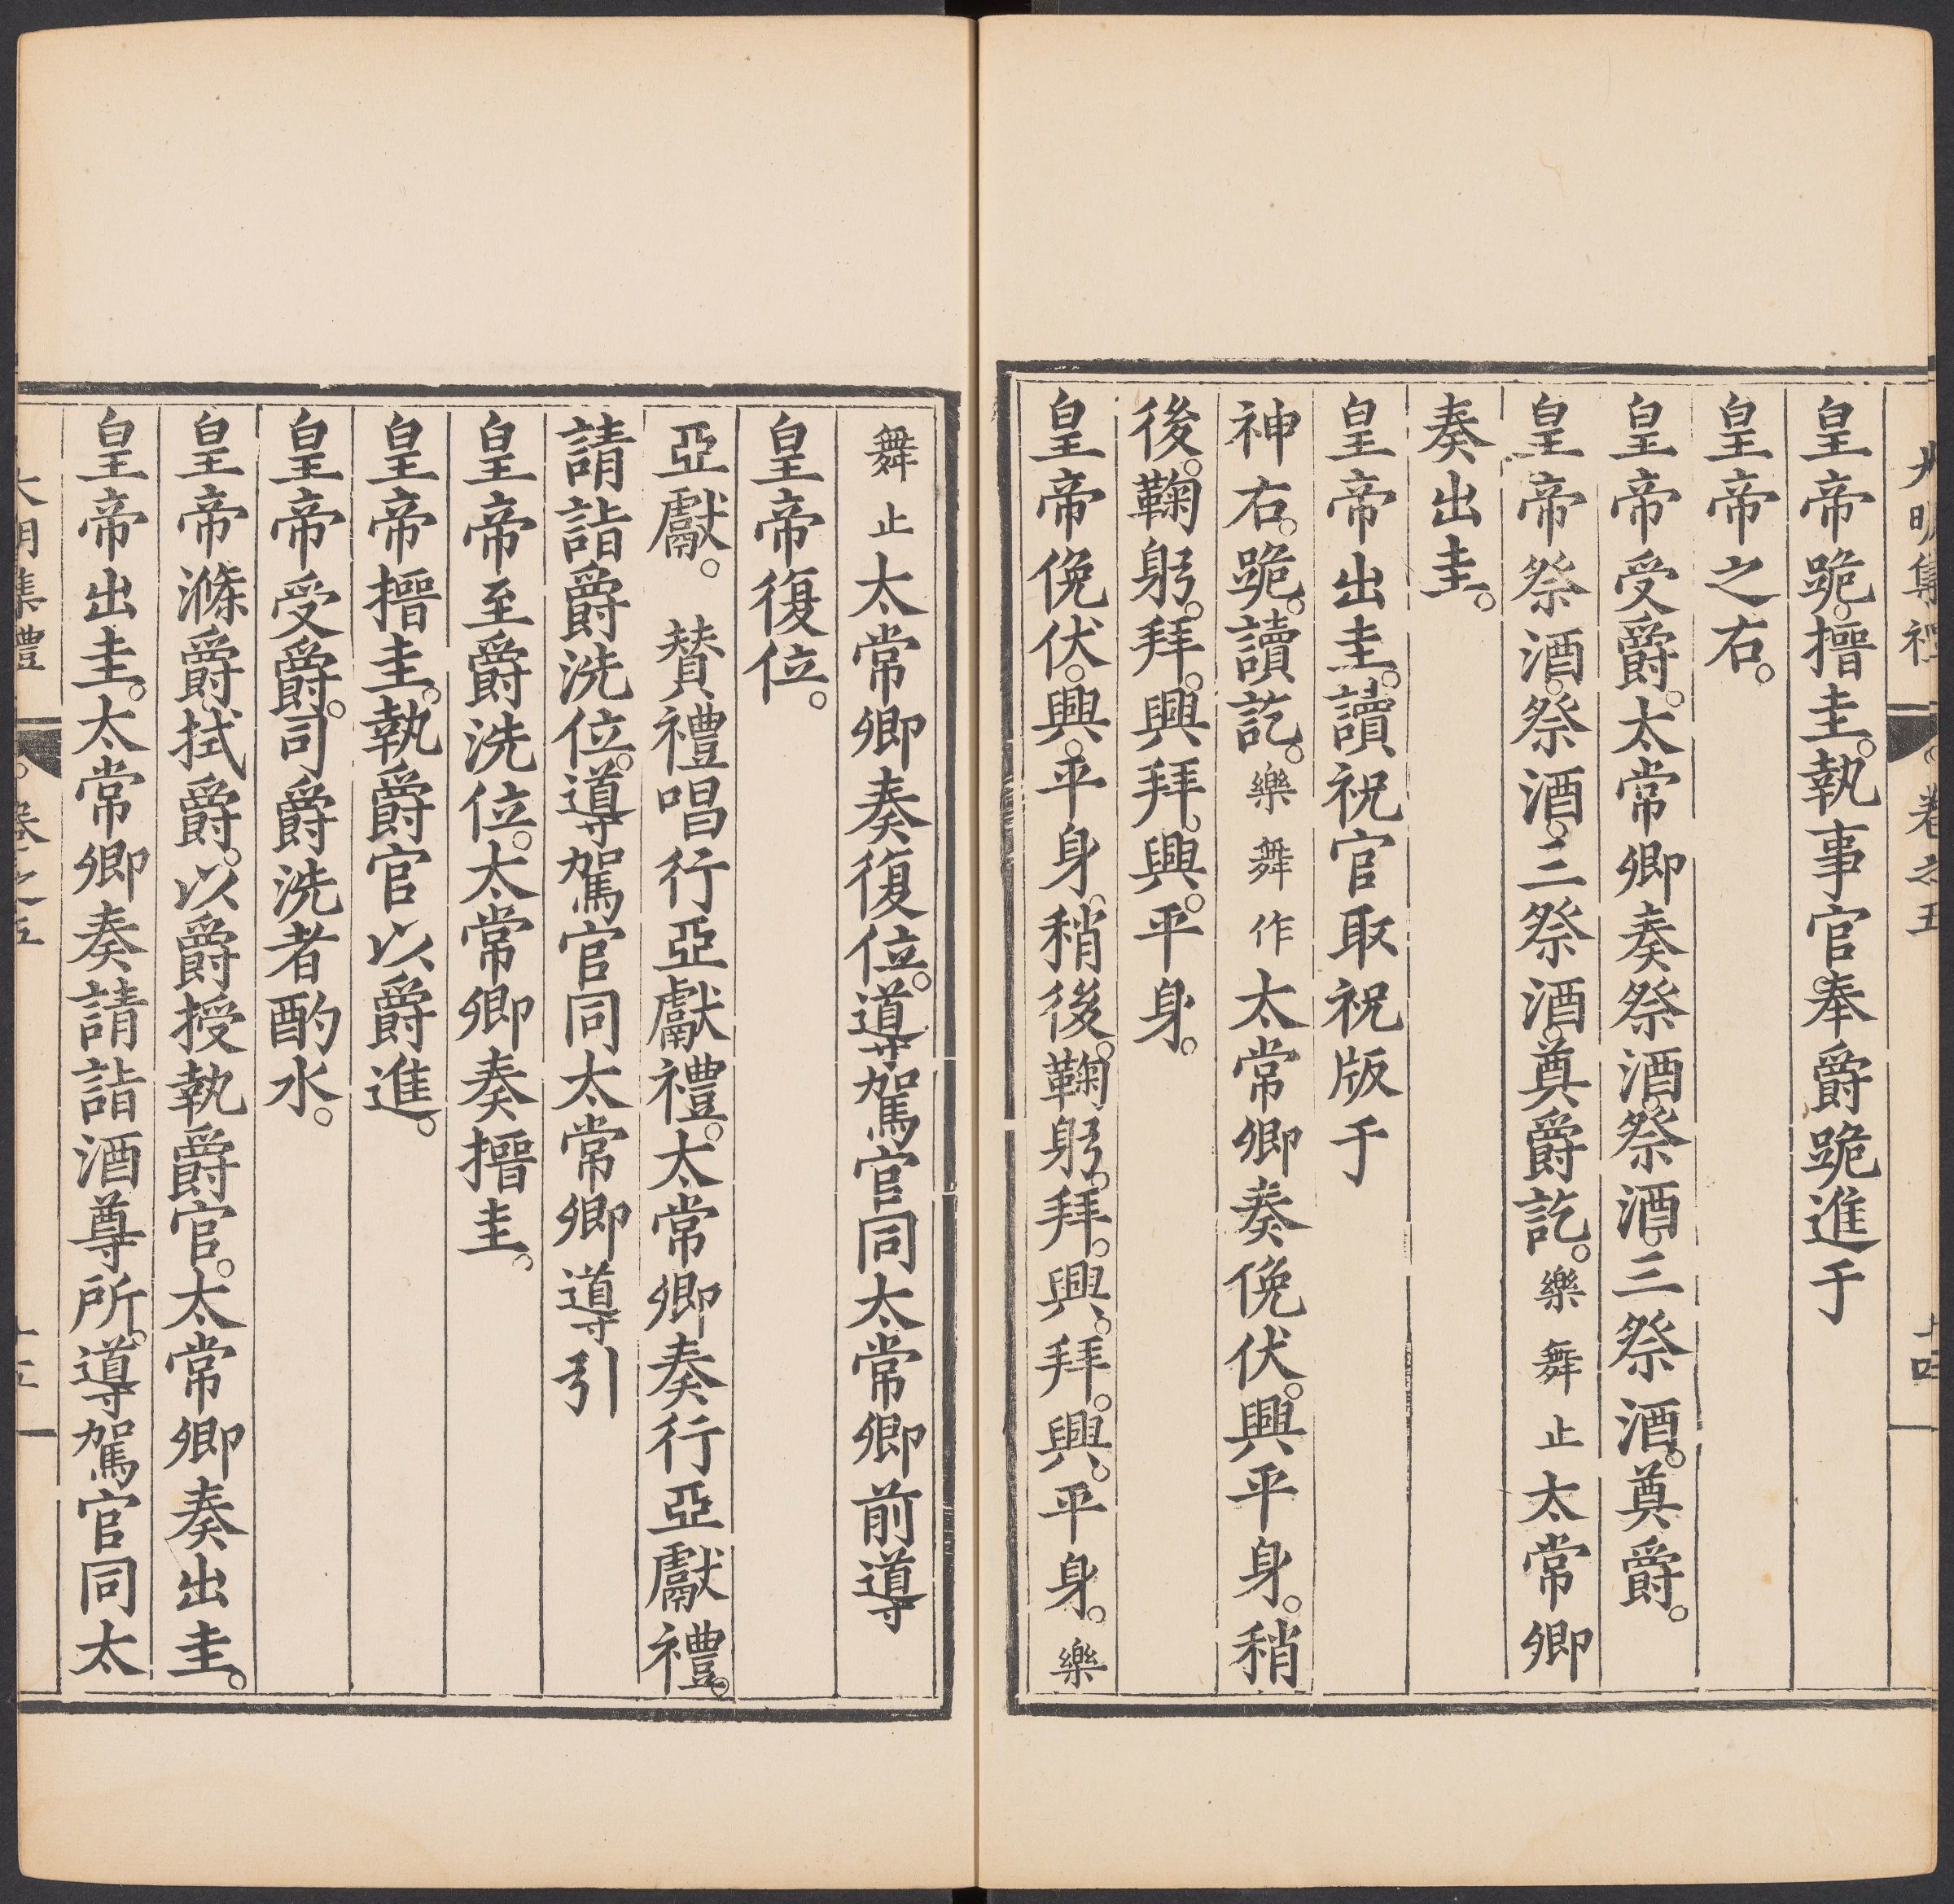 大明集禮 卷之五 十四
皇帝跪。搢圭。執事官。奉爵跪進于
皇帝之右。
皇帝受爵。太常卿奏祭酒。祭酒。三祭酒。奠爵。
皇帝祭酒。祭酒。三祭酒。奠爵訖。樂舞止太常卿
奏出圭。
皇帝出圭。讀祝官取祝版于
神右。跪。讀訖。樂舞作太常卿奏俛伏。興平身。稍
後。鞠躬。拜。興拜。興。平身。
皇帝俛伏。興。平身。稍後。鞠躬。拜。興。拜。興。平身。樂
舞止太常卿奏復位。導駕官同太常卿前導
皇帝復位。
亞獻。 贊禮唱行亞獻禮。太常卿奏行亞獻禮。
請詣爵洗位。導駕官同太常卿導引
皇帝至爵洗位。太常卿奏搢圭。
皇帝搢圭。執爵官以爵進。
皇帝受爵。司爵洗者酌水。
皇帝滌爵。拭爵。以爵授執爵官。太常卿奏出圭。
皇帝出圭。太常卿奏請詣酒尊所。導駕官同太
大明集禮 卷之五 十五